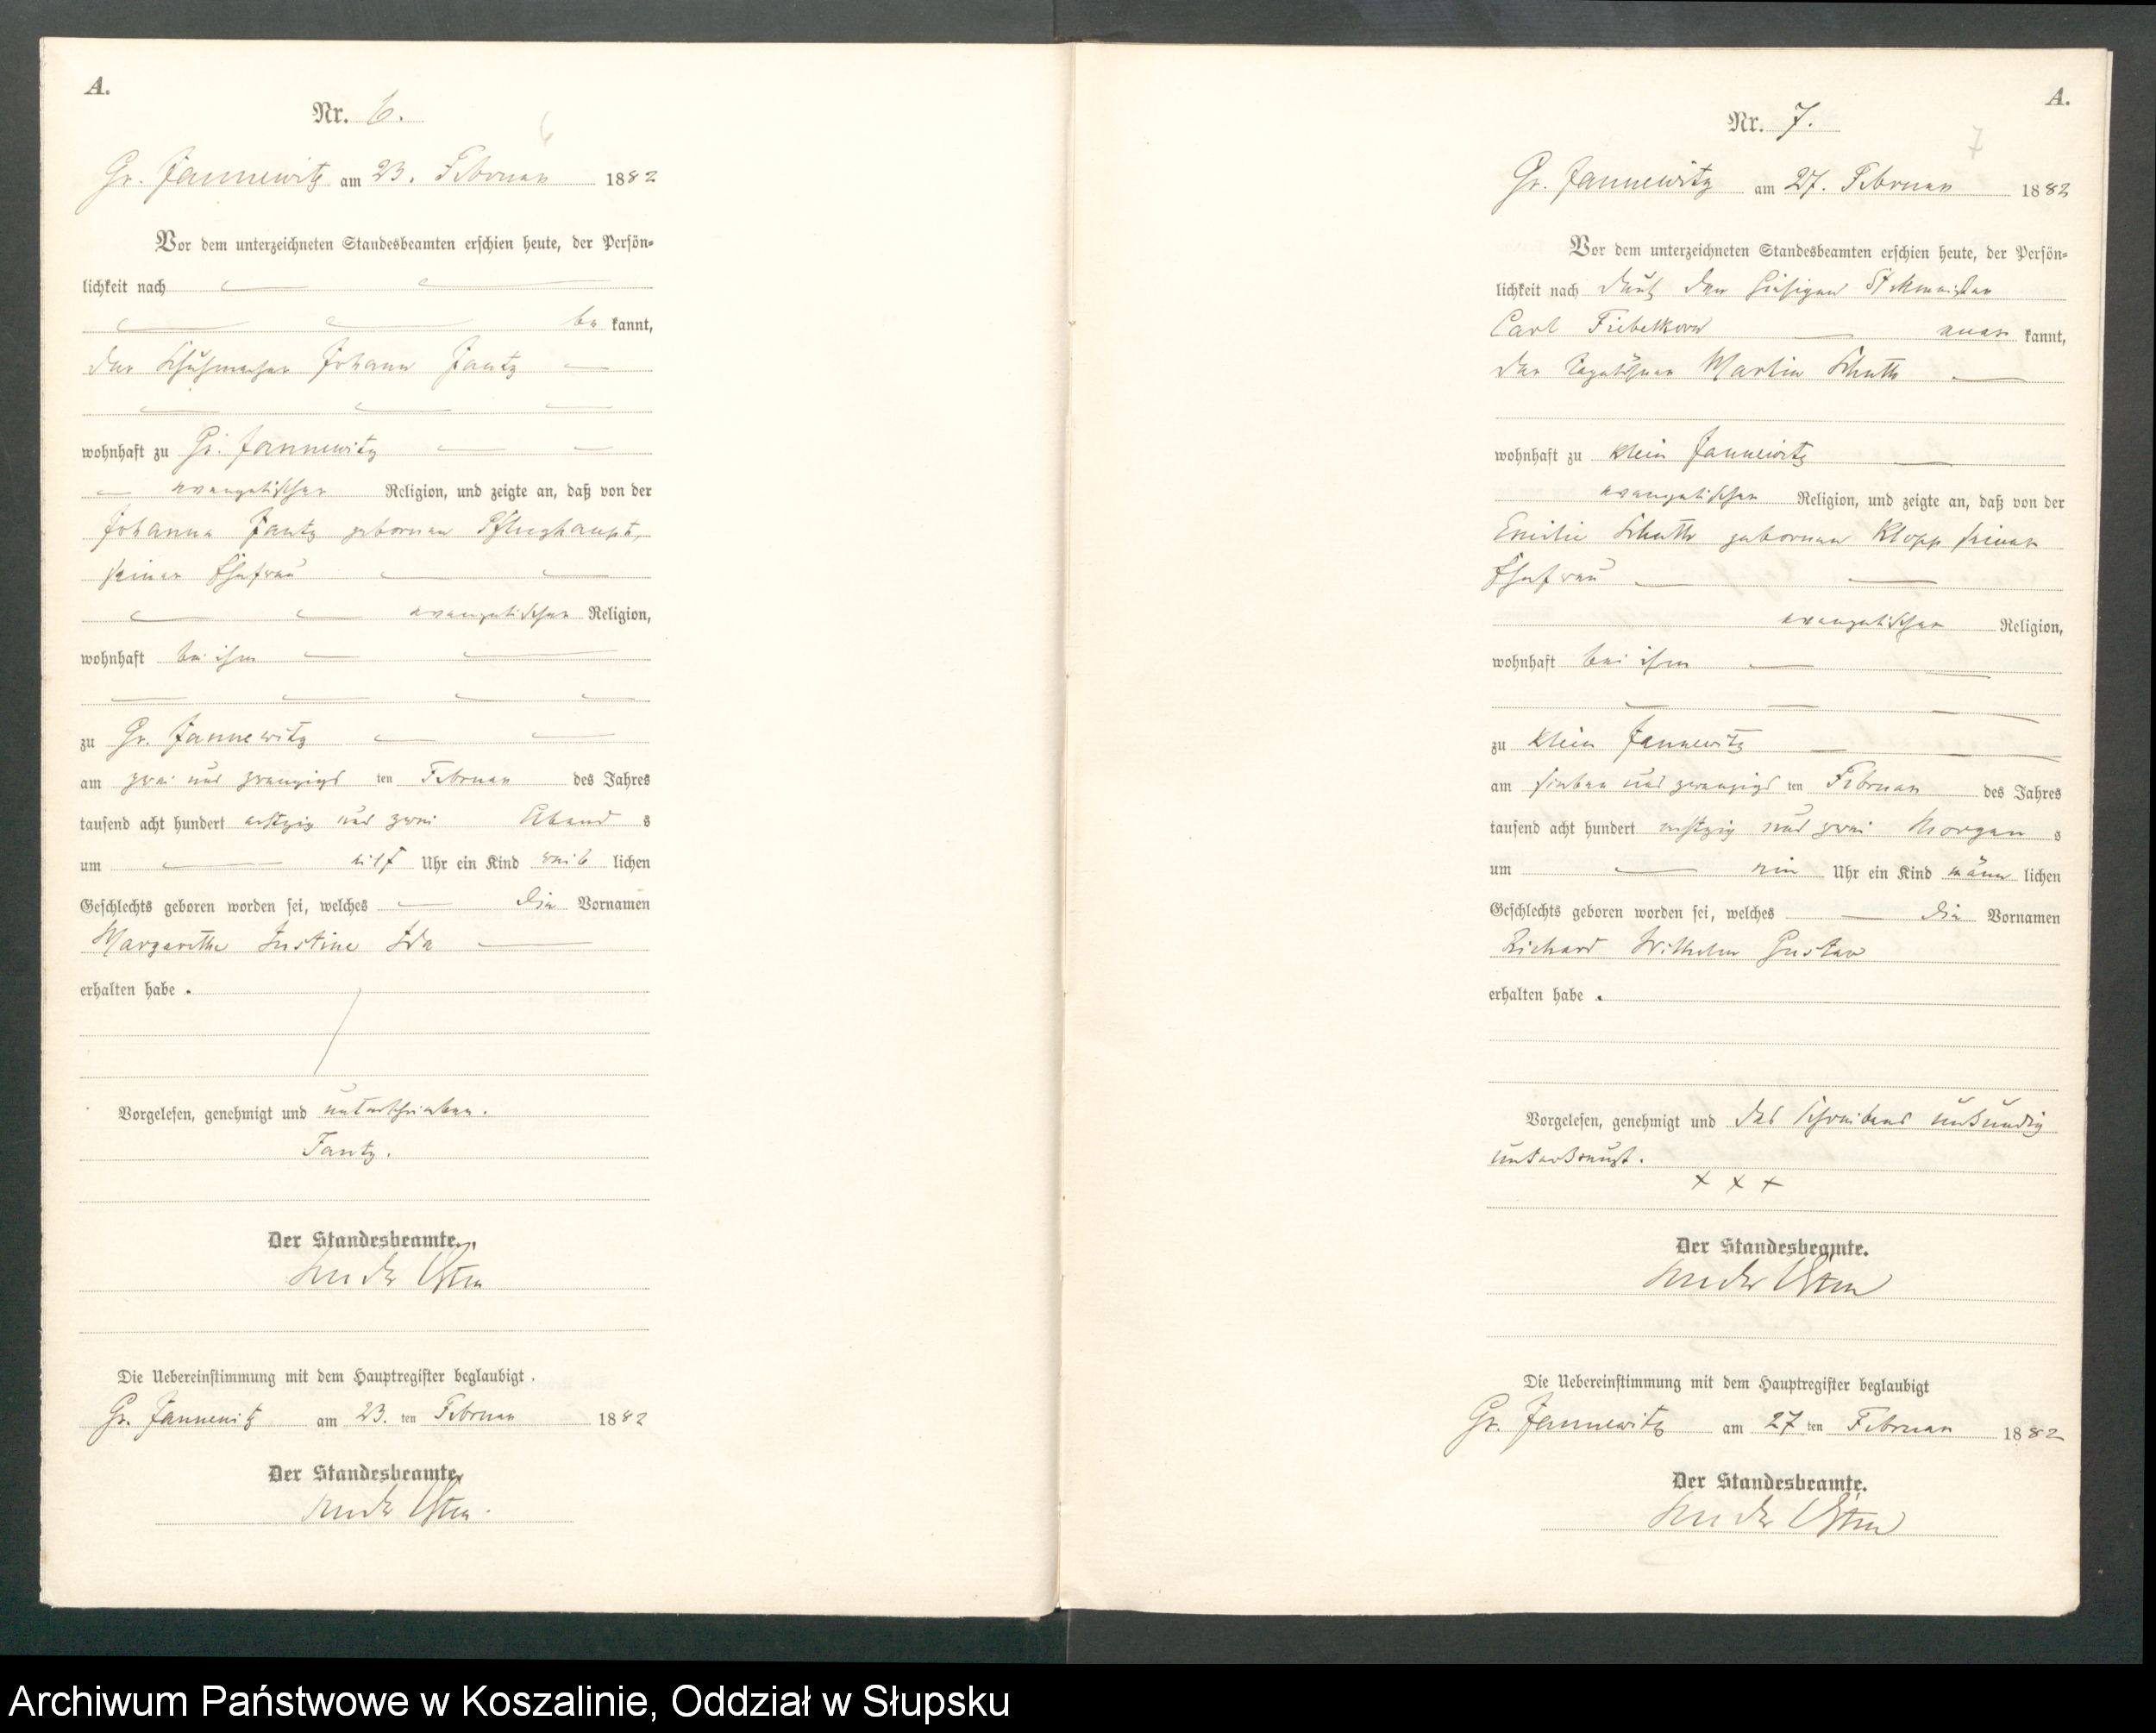 A.
Nr. 6.
6
Gr. Jannewitz am 23. Februar 1882
Vor dem unterzeichneten Standesbeamten erschien heute, der Persön=
lichkeit nach
be kannt,
der Schuhmacher Johann Jantz
wohnhaft zu Gr. Jannewitz
evangelischer Religion, und zeigte an, daß von der
Johanna Jantz geborenen Pflughaupt,
seiner Ehefrau
evangelischer Religion,
wohnhaft bei ihm
zu Gr. Jannewitz
am zwei und zwanzigs ten Februar des Jahres
tausend acht hundert achtzig und zwei Abend s
um elf Uhr ein Kind weib lichen
Geschlechts geboren worden sei, welches die Vornamen
Margarethe Justine Ida
erhalten habe.
Vorgelesen, genehmigt und unterschrieben.
Jantz.
Der Standesbeamte.
Die Uebereinstimmung mit dem Hauptregister beglaubigt.
Gr. Jannewitz am 23. ten Februar 1882
Der Standesbeamte.
A.
Nr. 7.
7
Gr. Jannewitz am 27. Februar 1882
Vor dem unterzeichneten Standesbeamten erschien heute, der Persön=
lichkeit nach durch den hiesigen
Carl Fiebelkorn aner kannt,
der Tagelöhner Martin Schutte
wohnhaft zu Klein Jannewitz
evangelischer Religion, und zeigte an, daß von der
Emilie Schutte geborenen Klopp seiner
Ehefrau
evangelischer Religion,
wohnhaft bei ihm
zu Klein Jannewitz
am sieben und zwanzigs ten Februar des Jahres
tausend acht hundert achtzig und zwei Morgen s
um ein Uhr ein Kind männ lichen
Geschlechts geboren worden sei, welches die Vornamen
Richard Wilhelm Gustav
erhalten habe.
Vorgelesen, genehmigt und des Schreibens unkundig
unterkreuzt.
x x x
Der Standesbeamte.
Die Uebereinstimmung mit dem Hauptregister beglaubigt
Gr. Jannewitz am 27 ten Februar 1882
Der Standesbeamte.
Archiwum Państwowe w Koszalinie, Oddział w Słupsku